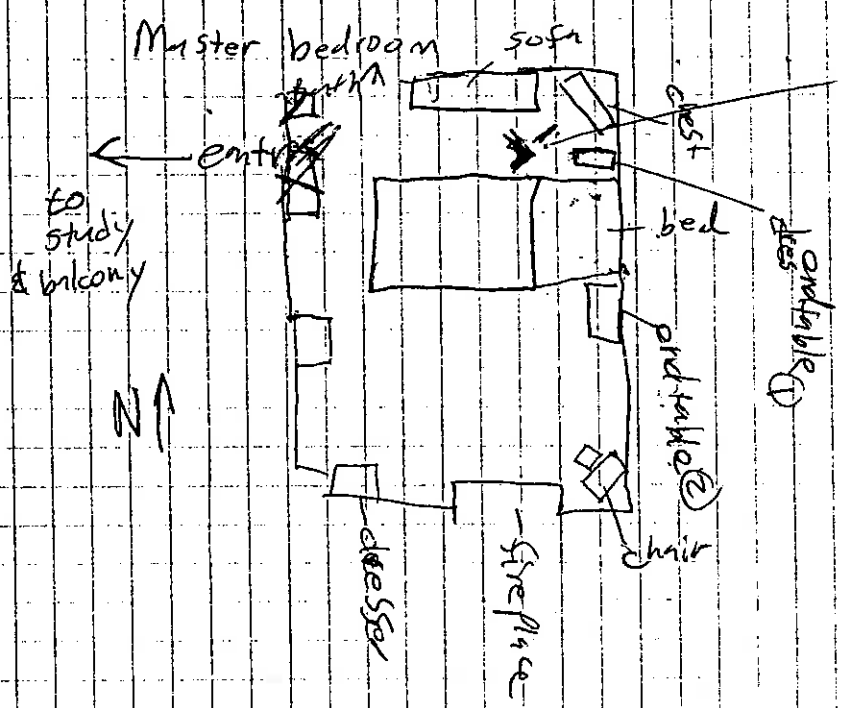 Master bedroom
sofa
chest
entry
to
study
& balcony
bed
endtable
①
endtable ②
N
chair
dresser
fireplace